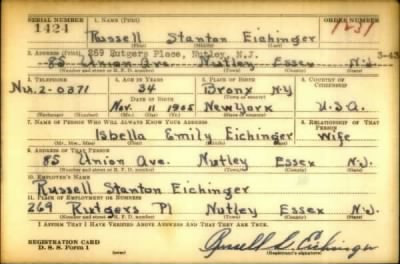 SERIAL NUMBER 1. NAME (Print) ORDER NUMBER
1424 Russell Stanton Eichinger 1231
(First) (Middle) (Last)
2. ADDRESS (Print) 269 Rutgers Place, Nutley, N.J. 3-43
85 Union Ave. Nutley Essex N.J.
(Number and street or R. F. D. number) (Town) (County) (State)
3. TELEPHONE 4. AGE IN YEARS 5. PLACE OF BIRTH 6. COUNTRY OF CITIZENSHIP
Nu. 2-0371 34 Bronx N.Y
DATE OF BIRTH (Town or county)
Nov. 11 1905 New York U.S.A.
(Exchange) (Number) (Mo.) (Day) (Yr.) (State or country)
7. NAME OF PERSON WHO WILL ALWAYS KNOW YOUR ADDRESS 8. RELATIONSHIP OF THAT PERSON
Isbella Emily Eichinger Wife
(Mr., Mrs., Miss) (First) (Middle) (Last)
9. ADDRESS OF THAT PERSON
85 Union Ave. Nutley Essex N.J.
(Number and street or R. F. D. number) (Town) (County) (State)
10. EMPLOYER'S NAME
Russell Stanton Eichinger
11. PLACE OF EMPLOYMENT OR BUSINESS
269 Rutgers Pl Nutley Essex N.J.
(Number and street or R. F. D. number) (Town) (County) (State)
I AFFIRM THAT I HAVE VERIFIED ABOVE ANSWERS AND THAT THEY ARE TRUE.
REGISTRATION CARD Russell S. Eichinger
D. S. S. Form 1 (over) (Registrant's signature)